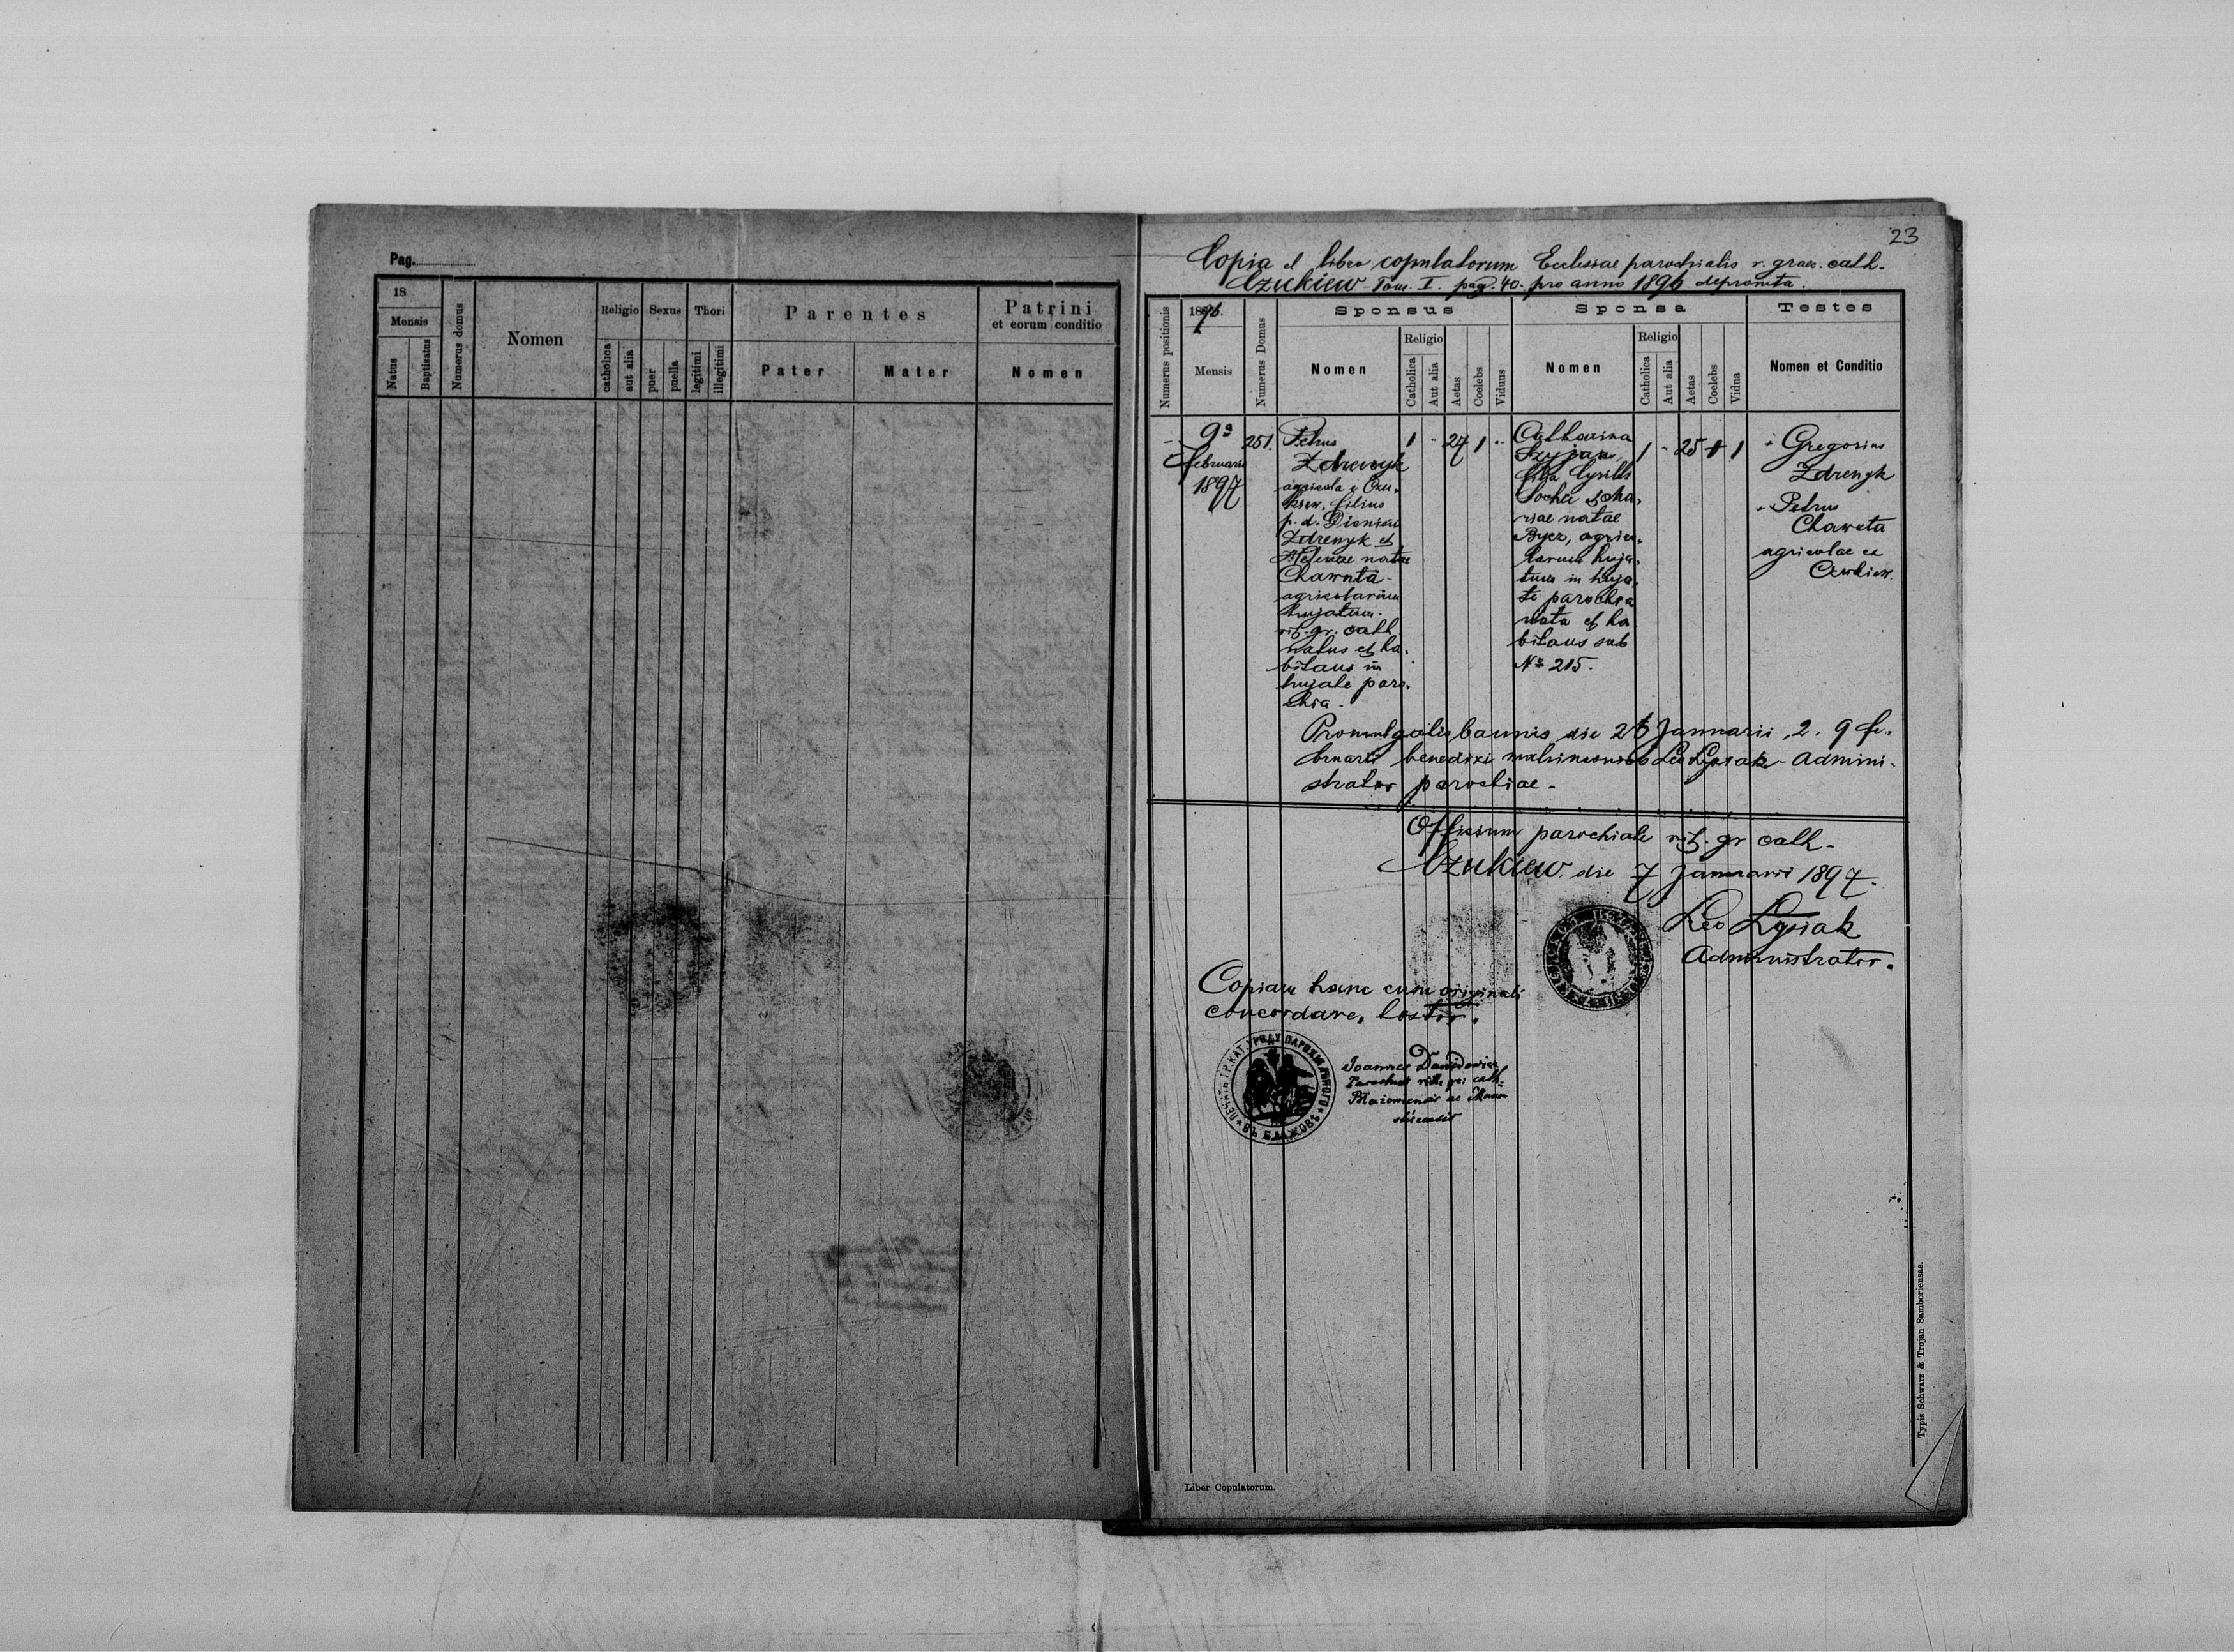 Pag.
18
Mensis
Natus
Baptisatus
Numerus domus
Nomen
Religio
catholica
aut alia
Sexus
puer
puella
Thori
legitimi
illegitimi
Parentes
Pater
Mater
Patrini
et eorum conditio
Nomen
23
Copia et libro copulatorum Ecclesiae parochialis r. graec. cath.
Czukiew Tom. I. pag. 40. pro anno 1896 deprompta.
Numerus positionis
1896.
Mensis
Numerus Domus
Sponsus
Nomen
Religio
Catholica
Aut alia
Aetas
Coelebs
Viduus
Sponsa
Nomen
Religio
Catholica
Aut alia
Aetas
Coelebs
Vidua
Testes
Nomen et Conditio
9a
februarii
1897
251.
Petrus
Zdrenyk
agricola e Czu-
kiew. filius
p. d. Dionisii
Zdrenyk et
Helenae natae
Chawnta
agricolarum
hujatum.
rit. gr. cath
natus et ha-
bitans in
hujate paro-
chia.
1 - 24 1 -
Catharina
Szyjan
filia Cyrilli
Socha et Ma-
riae natae
Bycz, agrico-
larum huja-
tum in huja-
te parochia
nata et ha-
bitans sub
No 215.
1 - 25 1 1
Gregorius
Zdrenyk
Petrus
Chaweta
agricolae ex
Czukiew.
Promulgatis bannis die 26 Januarii, 2. 9 fe-
bruarii benedixi matrimonio Leo Lysiak - Admini-
strator parochiae.
Officium parochiale rit. gr cath.
Czukiew. die 7 Januarii 1897.
Leo Lysiak
Administrator.
Copiam hanc cum originali
concordare, testor.
ПЕЧАТЬ ГР. КАТ. УРЯДУ ПАРОХІАЛЬНОГО
ВЪ БЛАЖОВѢ
Joannes Dawidowicz
Parochus ritus gr. cath.
Typis Schwarz & Trojan Samboriensae.
Liber Copulatorum.